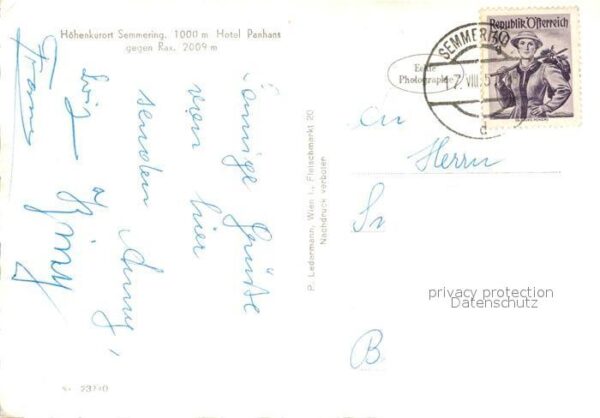 Höhenkurort Semmering. 1000 m Hotel Panhans
gegen Rax. 2009 m
Innige Grüße
von hier
senden Anny,
Franz
P. Ledermann, Wien I., Fleischmarkt 20
Nachdruck verboten
Echte
Photographie
SEMMERING
17. VIII. 5
d
Republik Österreich
An
Herrn
B
privacy protection
Datenschutz
23740